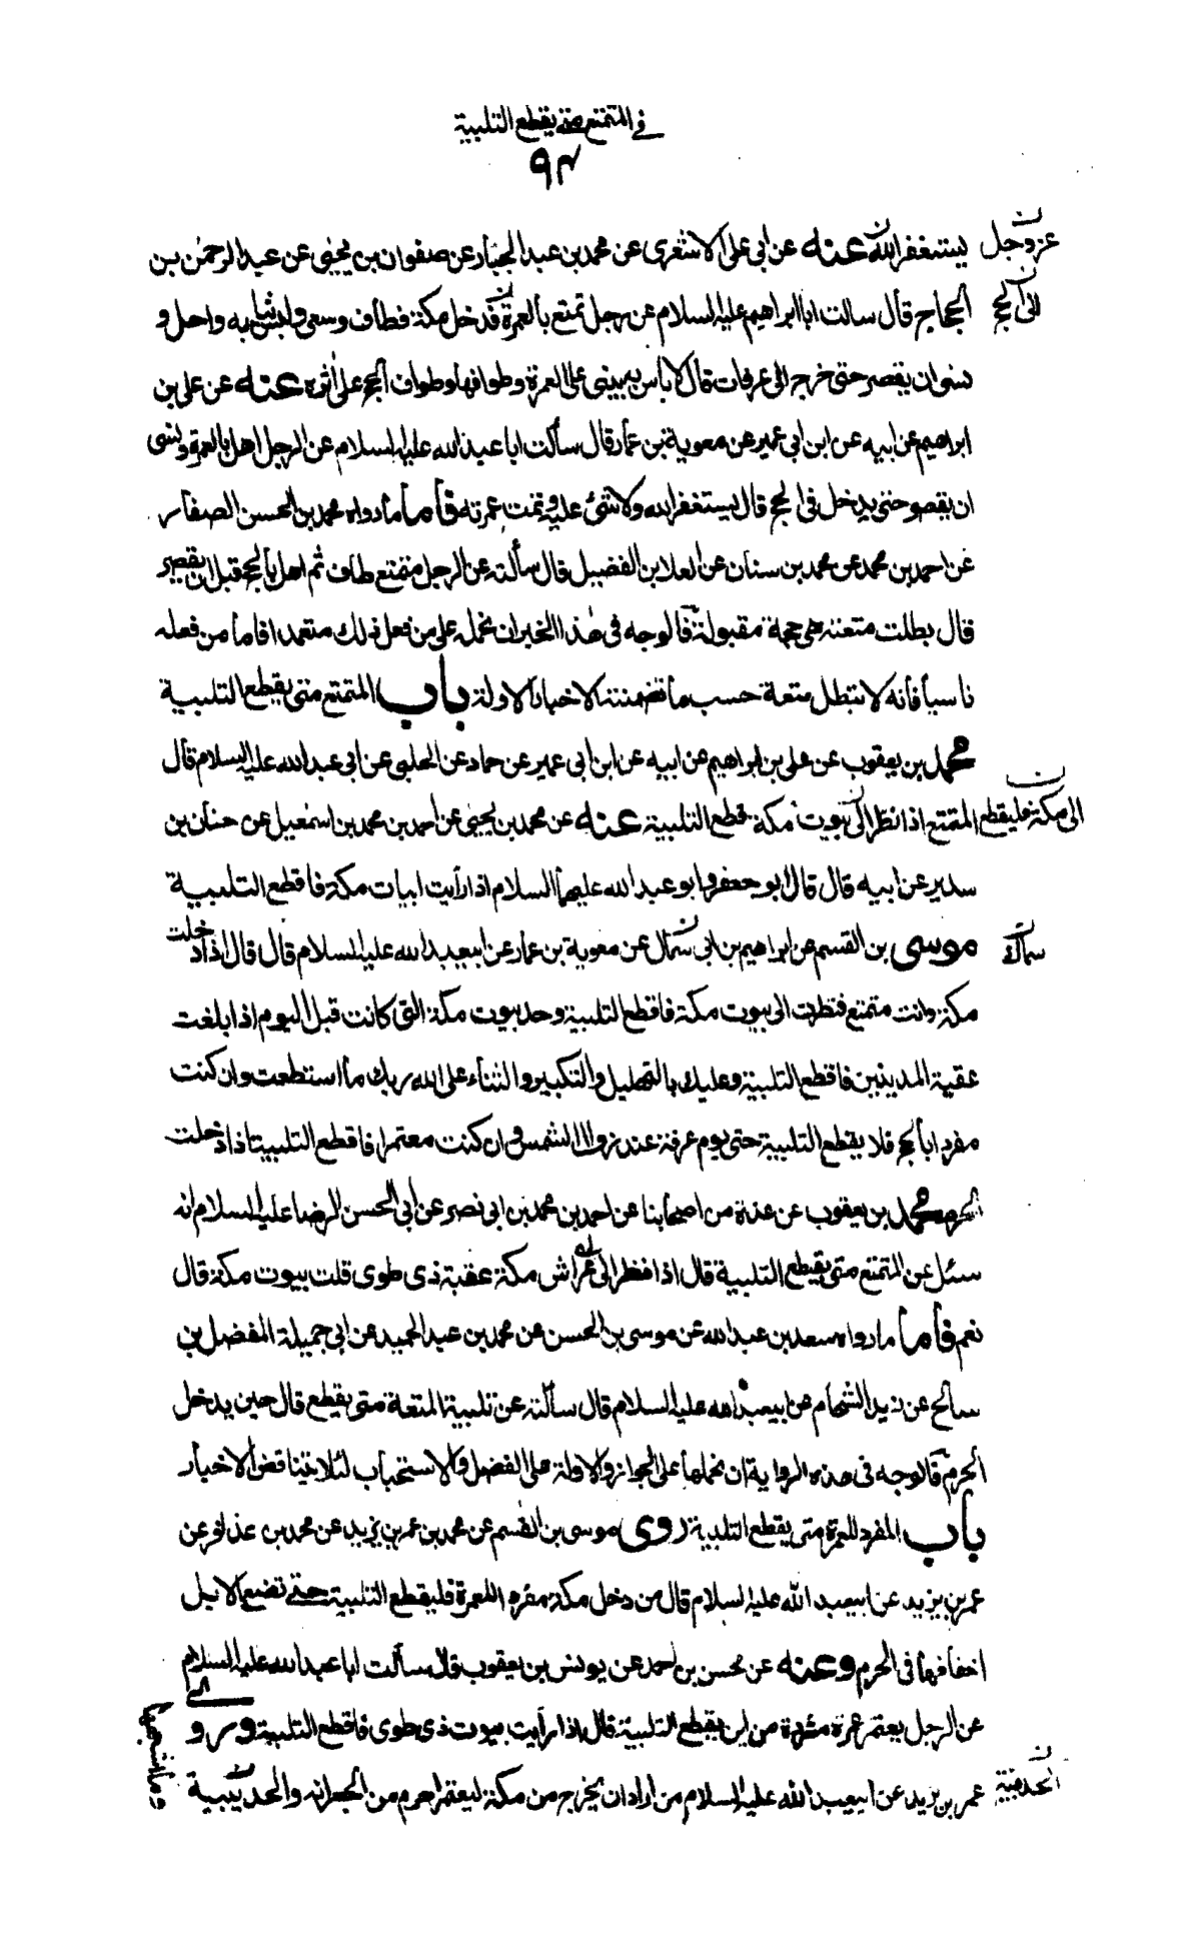 في المتمتع متى يقطع التلبية
٩٣
عز وجل يستغفر الله عنه عن ابي علي الاشعري عن محمد بن عبد الجبار عن صفوان بن يحيى عن عبد الرحمن بن
الى الحج الحجاج قال سالت ابا ابراهيم عليه السلام عن رجل تمتع بالعمرة فدخل مكة فطاف وسعى ولبس ثيابه واحل و
نسى ان يقصر حتى خرج الى عرفات قال لا باس به يبنى على العمرة وطوافها وطواف الحج على اثره عنه عن علي بن
ابراهيم عن ابيه عن ابن ابي عمير عن معوية بن عمار قال سألت ابا عبد الله عليه السلام عن الرجل اهل بالعمرة ونسى
ان يقصر حتى يدخل في الحج قال يستغفر الله ولا شئ عليه وتمت عمرته فأما ما رواه محمد بن الحسن الصفار
عن احمد بن محمد عن محمد بن سنان عن العلا بن الفضيل قال سألته عن الرجل متمتع طاف ثم اهل بالحج قبل ان يقصر
قال بطلت متعته هي حجة مقبولة فالوجه في هذا الخبر ان نحمله على من فعل ذلك متعمدا فاما من فعله
ناسيا فانه لا تبطل متعة حسب ما تضمنته الاخبار الاولة باب المتمتع متى يقطع التلبية
محمد بن يعقوب عن علي بن ابراهيم عن ابيه عن ابن ابي عمير عن حماد عن الحلبي عن ابي عبد الله عليه السلام قال
الى مكة فليقطع المتمتع اذا نظر الى بيوت مكة قطع التلبية عنه عن محمد بن يحيى عن احمد بن محمد بن اسمعيل عن حنان بن
سدير عن ابيه قال قال ابو جعفر وابو عبد الله عليهما السلام اذا رأيت ابيات مكة فاقطع التلبية
سماك موسى بن القسم عن ابراهيم بن ابي سمال عن معوية بن عمار عن ابيعبد الله عليه السلام قال قال اذا دخلت
مكة وانت متمتع فنظرت الى بيوت مكة فاقطع التلبية وحد بيوت مكة التي كانت قبل اليوم اذا بلغت
عقبة المدينين فاقطع التلبية وعليك بالتهليل والتكبير والثناء على الله ربك ما استطعت وان كنت
مفردا بالحج فلا يقطع التلبية حتى يوم عرفة عند زوال الشمس وان كنت معتمرا فاقطع التلبية اذا دخلت
الحرم محمد بن يعقوب عن عدة من اصحابنا عن احمد بن محمد بن ابي نصر عن ابي الحسن الرضا عليه السلام انه
سئل عن المتمتع متى يقطع التلبية قال اذا نظر الى عراش مكة عقبة ذى طوى قلت بيوت مكة قال
نعم فأما ما رواه سعد بن عبد الله عن موسى بن الحسن عن محمد بن عبد الحميد عن ابي جميلة المفضل بن
صالح عن زيد الشحام عن ابيعبد الله عليه السلام قال سألته عن تلبية المتعة متى يقطع قال حين يدخل
الحرم فالوجه في هذه الرواية ان نحملها على الجواز والاولة على الفضل والاستحباب لئلا يتناقض الاخبار
باب المفرد للعمرة متى يقطع التلبية روى موسى بن القسم عن محمد بن عمر بن يزيد عن محمد بن عذافر عن
عمر بن يزيد عن ابيعبد الله عليه السلام قال من دخل مكة مفردا للعمرة فليقطع التلبية حتى تضع الابل
اخفافها في الحرم وعنه عن محسن بن احمد عن يونس بن يعقوب قال سألت ابا عبد الله عليه السلام
عن الرجل يعتمر عمرة مفردة من اين يقطع التلبية قال اذا رأيت بيوت ذى طوى فاقطع التلبية وروى
الحديبية عمر بن يزيد عن ابيعبد الله عليه السلام من اراد ان يخرج من مكة ليعتمر احرم من الجعرانه والحديبية